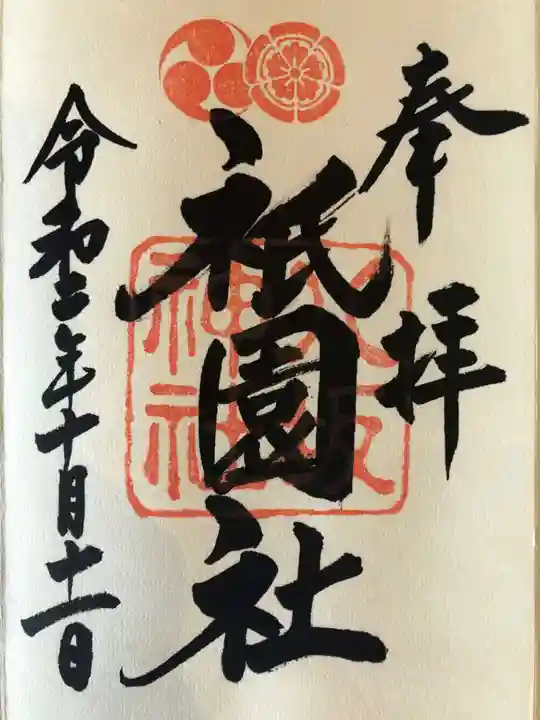 奉拝
祇園社
八坂神社
令和二年十月十一日